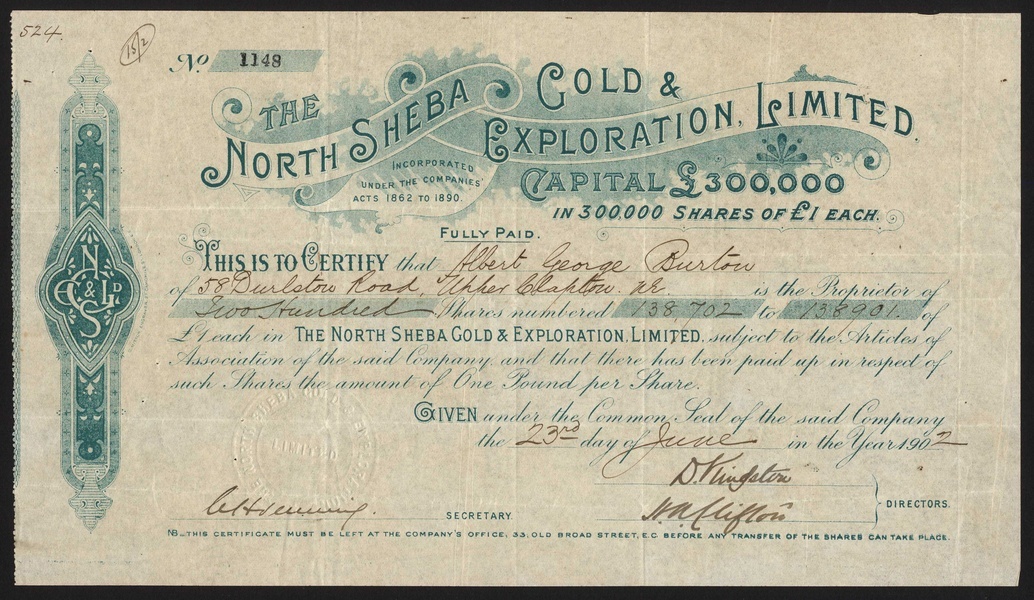 524.
15/2
No. 1148
THE
NORTH SHEBA GOLD &
EXPLORATION, LIMITED.
INCORPORATED
UNDER THE COMPANIES'
ACTS 1862 TO 1890.
CAPITAL £300,000
IN 300,000 SHARES OF £1 EACH.
FULLY PAID.
THIS IS TO CERTIFY that Albert George Burton
of 58 Durlston Road, Upper Clapton. NE is the Proprietor of
Two Hundred Shares numbered 138,702 to 138901. of
£1 each in THE NORTH SHEBA GOLD & EXPLORATION, LIMITED. subject to the Articles of
Association of the said Company, and that there has been paid up in respect of
such Shares the amount of One Pound per Share.
GIVEN under the Common Seal of the said Company
the 23rd day of June in the Year 1902
D. Kingston
H. A. Clifton
DIRECTORS.
SECRETARY.
NB_THIS CERTIFICATE MUST BE LEFT AT THE COMPANY'S OFFICE, 33, OLD BROAD STREET, E.C. BEFORE ANY TRANSFER OF THE SHARES CAN TAKE PLACE.
N
G & E LD
S
LIMITED